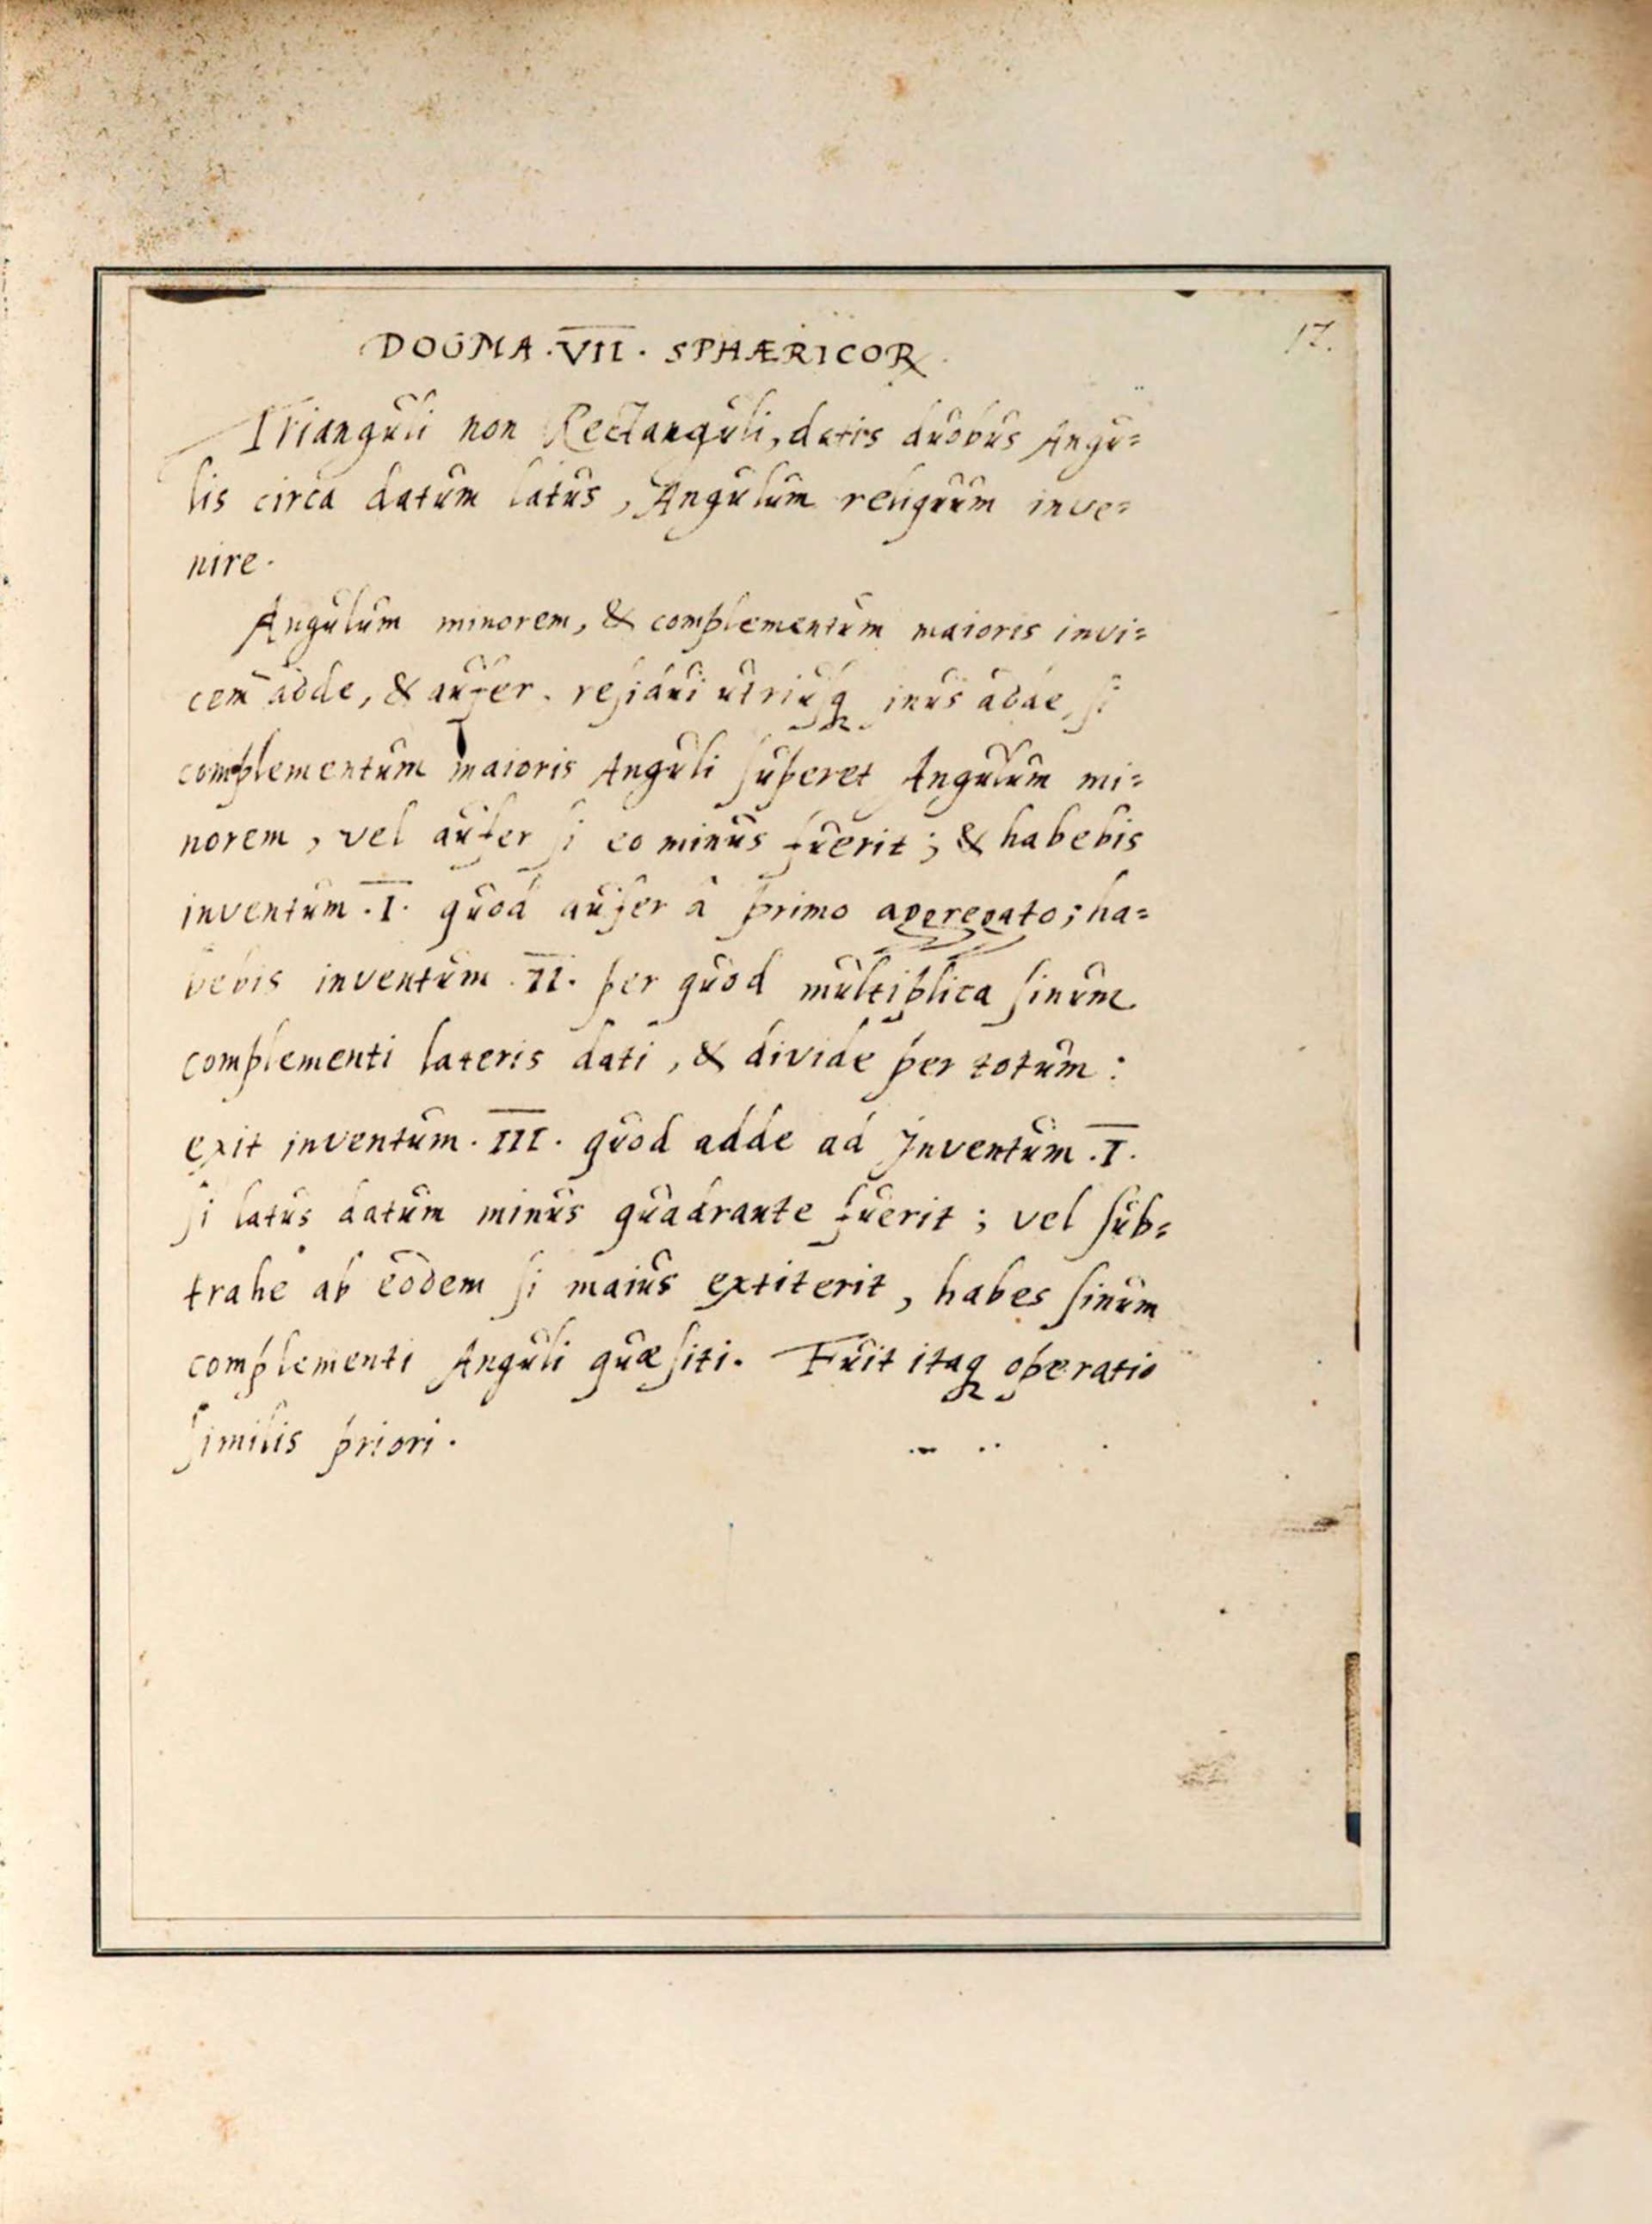 DOGMA . VII . SPHÆRICOR℞
17.
Trianguli non Rectanguli, datis duobus Angu=
lis circa datum latus, Angulum reliquum inve=
nire.
Angulum minorem, & complementum maioris invi=
cem adde, & aufer. residui utriusq inus adde, si
complementum maioris Anguli superet Angulum mi=
norem, vel aufer si eo minus fuerit; & habebis
inventum . I . quod aufer à primo aggregato; ha=
bebis inventum . II . per quod multiplica sinum
complementi lateris dati, & divide per totum :
exit inventum . III . quod adde ad Inventum . I .
si latus datum minus quadrante fuerit ; vel sub=
trahe ab eodem si maius extiterit, habes sinum
complementi Anguli quæsiti. Fuit itaq operatio
similis priori.